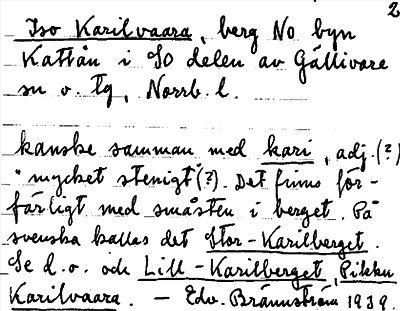 2
Iso Karilvaara, berg No byn
Kattån i SO delen av Gällivare
sn o. tg, Norrb. l.
kanske samman med kari, adj. (?)
"mycket stenigt"(?). Det finns för-
färligt med småsten i berget. På
svenska kallas det Stor-Karilberget.
Se d. o. och Lill-Karilberget, Pikku
Karilvaara. – Edv. Brännström 1939.